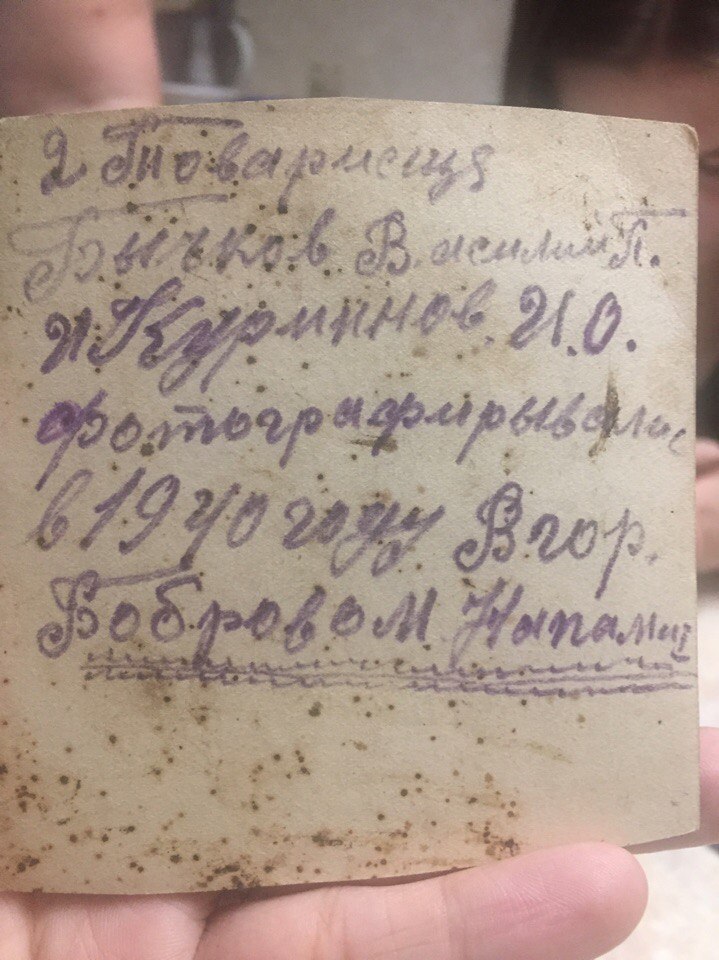 2 Товарисща
Бычков Василий П.
и Курминов. И.О.
фотографирывалис
в 1940 году Вгор.
Бобровом. Напамят